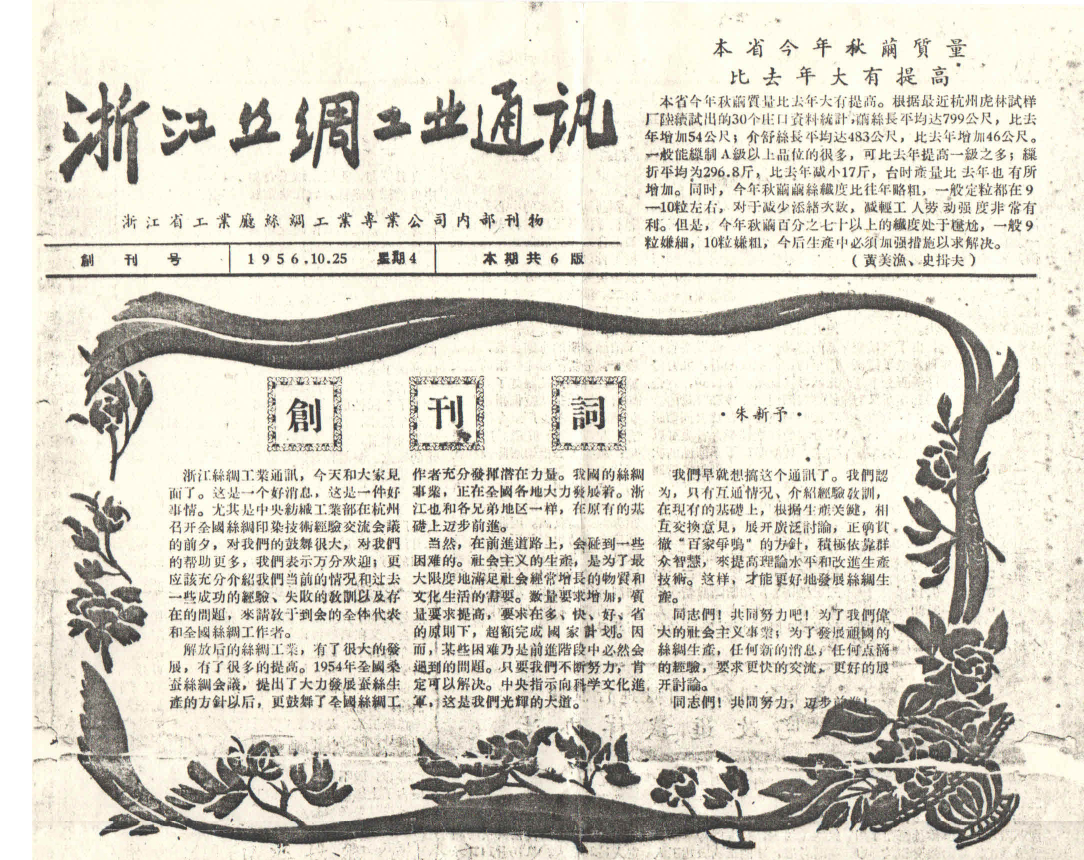 浙江丝綢工业通訊
浙江省工業廳絲綢工業專業公司内部刊物
創刊号
1956.10.25 星期4
本期共6版
本省今年秋繭質量
比去年大有提高
本省今年秋繭質量比去年大有提高。根据最近杭州虎林試样
厂陸續試出的30个庄口資料統計,繭絲長平均达799公尺，比去
年增加54公尺；介舒絲長平均达483公尺，比去年增加46公尺。
一般能繅制A級以上品位的很多，可比去年提高一級之多；繅
折平均为296.8斤，比去年减小17斤，台时產量比去年也有所
增加。同时，今年秋繭繭絲纖度比往年略粗，一般定粒都在9
—10粒左右，对于减少添緒次数，减輕工人劳动强度非常有
利。但是，今年秋繭百分之七十以上的纖度处于尶尬，一般9
粒嫌細，10粒嫌粗，今后生產中必須加强措施以求解决。
（黃美漁、史揖夫）
創刊詞
·朱新予·
浙江絲綢工業通訊，今天和大家見
面了。这是一个好消息，这是一件好
事情。尤其是中央紡織工業部在杭州
召开全國絲綢印染技術經驗交流会議
的前夕，对我們的鼓舞很大，对我們
的帮助更多，我們表示万分欢迎；更
应該充分介紹我們当前的情况和过去
一些成功的經驗、失敗的敎訓以及存
在的問題，來請敎于到会的全体代表
和全國絲綢工作者。
解放后的絲綢工業，有了很大的發
展，有了很多的提高。1954年全國桑
蚕絲綢会議，提出了大力發展蚕絲生
產的方針以后，更鼓舞了全國絲綢工
作者充分發揮潛在力量。我國的絲綢
事業，正在全國各地大力發展着。浙
江也和各兄弟地区一样，在原有的基
礎上迈步前進。
当然，在前進道路上，会碰到一些
困难的。社会主义的生產，是为了最
大限度地滿足社会經常增長的物質和
文化生活的需要。数量要求增加，質
量要求提高，要求在多、快、好、省
的原則下，超額完成國家計划。因
而，某些困难乃是前進階段中必然会
遇到的問題。只要我們不断努力，肯
定可以解决。中央指示向科学文化進
軍，这是我們光輝的大道。
我們早就想搞这个通訊了。我們認
为，只有互通情况、介紹經驗敎訓，
在現有的基礎上，根据生產关鍵，相
互交換意見，展开廣泛討論，正确貫
徹“百家爭鳴”的方針，積極依靠群
众智慧，來提高理論水平和改進生產
技術。这样，才能更好地發展絲綢生
產。
同志們！共同努力吧！为了我們偉
大的社会主义事業；为了發展祖國的
絲綢生產，任何新的消息，任何点滴
的經驗，要求更快的交流，更好的展
开討論。
同志們！共同努力，迈步前進！